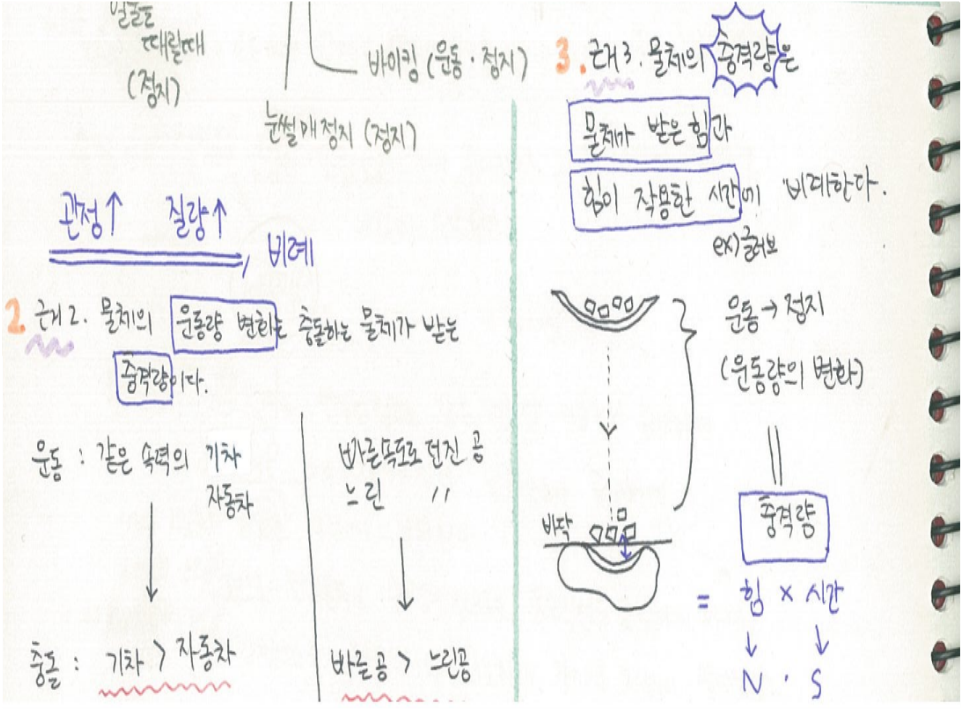 때릴때
(정지)
바이킹 (운동·정지)
눈썰매 정지 (정지)
관성↑ 질량↑, 비례
2. 근거 2. 물체의 운동량 변화는 충돌하는 물체가 받는
충격량이다.
운동 : 같은 속력의 기차
자동차
충돌 : 기차 > 자동차
빠른속도로 던진 공
느린 〃
빠른공 > 느린공
3. 근거 3. 물체의 충격량은
물체가 받은 힘과
힘이 작용한 시간에 비례한다.
ex)글러브
운동 → 정지
(운동량의 변화)
바닥
충격량
= 힘 × 시간
N · S